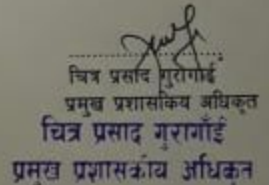 चित्र प्रसाद गुरागाई
प्रमुख प्रशासकिय अधिकृत
चित्र प्रसाद गुरागाँई
प्रमुख प्रशासकीय अधिकृत